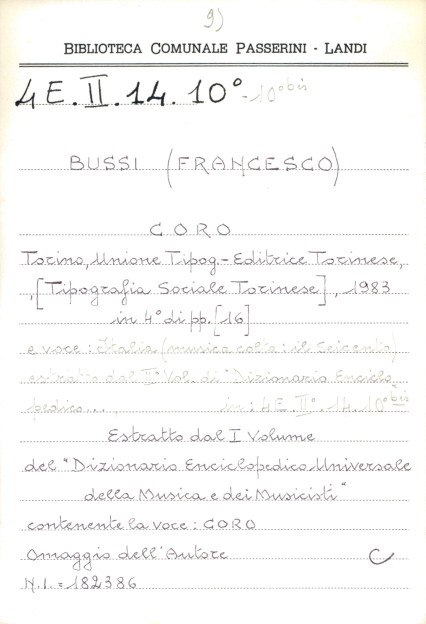 9)
BIBLIOTECA COMUNALE PASSERINI - LANDI
4E.II.14.10° -10° bis
BUSSI (FRANCESCO)
CORO
Torino, Unione Tipog.- Editrice Torinese,
,[Tipografia Sociale Torinese], 1983
in 4° di pp. [16]
e voce: Italia (musica colta: il Seicento)
estratto dal II° Vol. di "Dizionario Enciclo
pedico... in: 4E.II°.14.10° bis
Estratto dal I Volume
del "Dizionario Enciclopedico Universale
della Musica e dei Musicisti"
contenente la voce: CORO
Omaggio dell'Autore C
N.I. = 182386